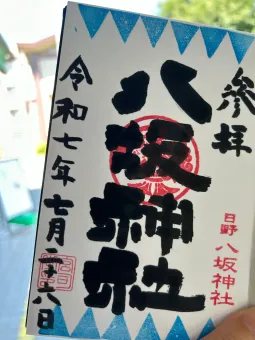 参拝
日野 八坂神社
八坂神社
令和七年七月二十八日